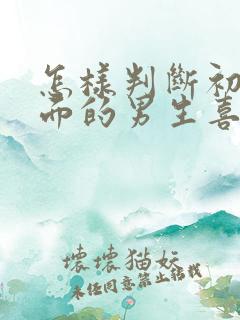 怎樣判斷初
而的男生喜
壞壞猫妖
未径同意禁止轉載